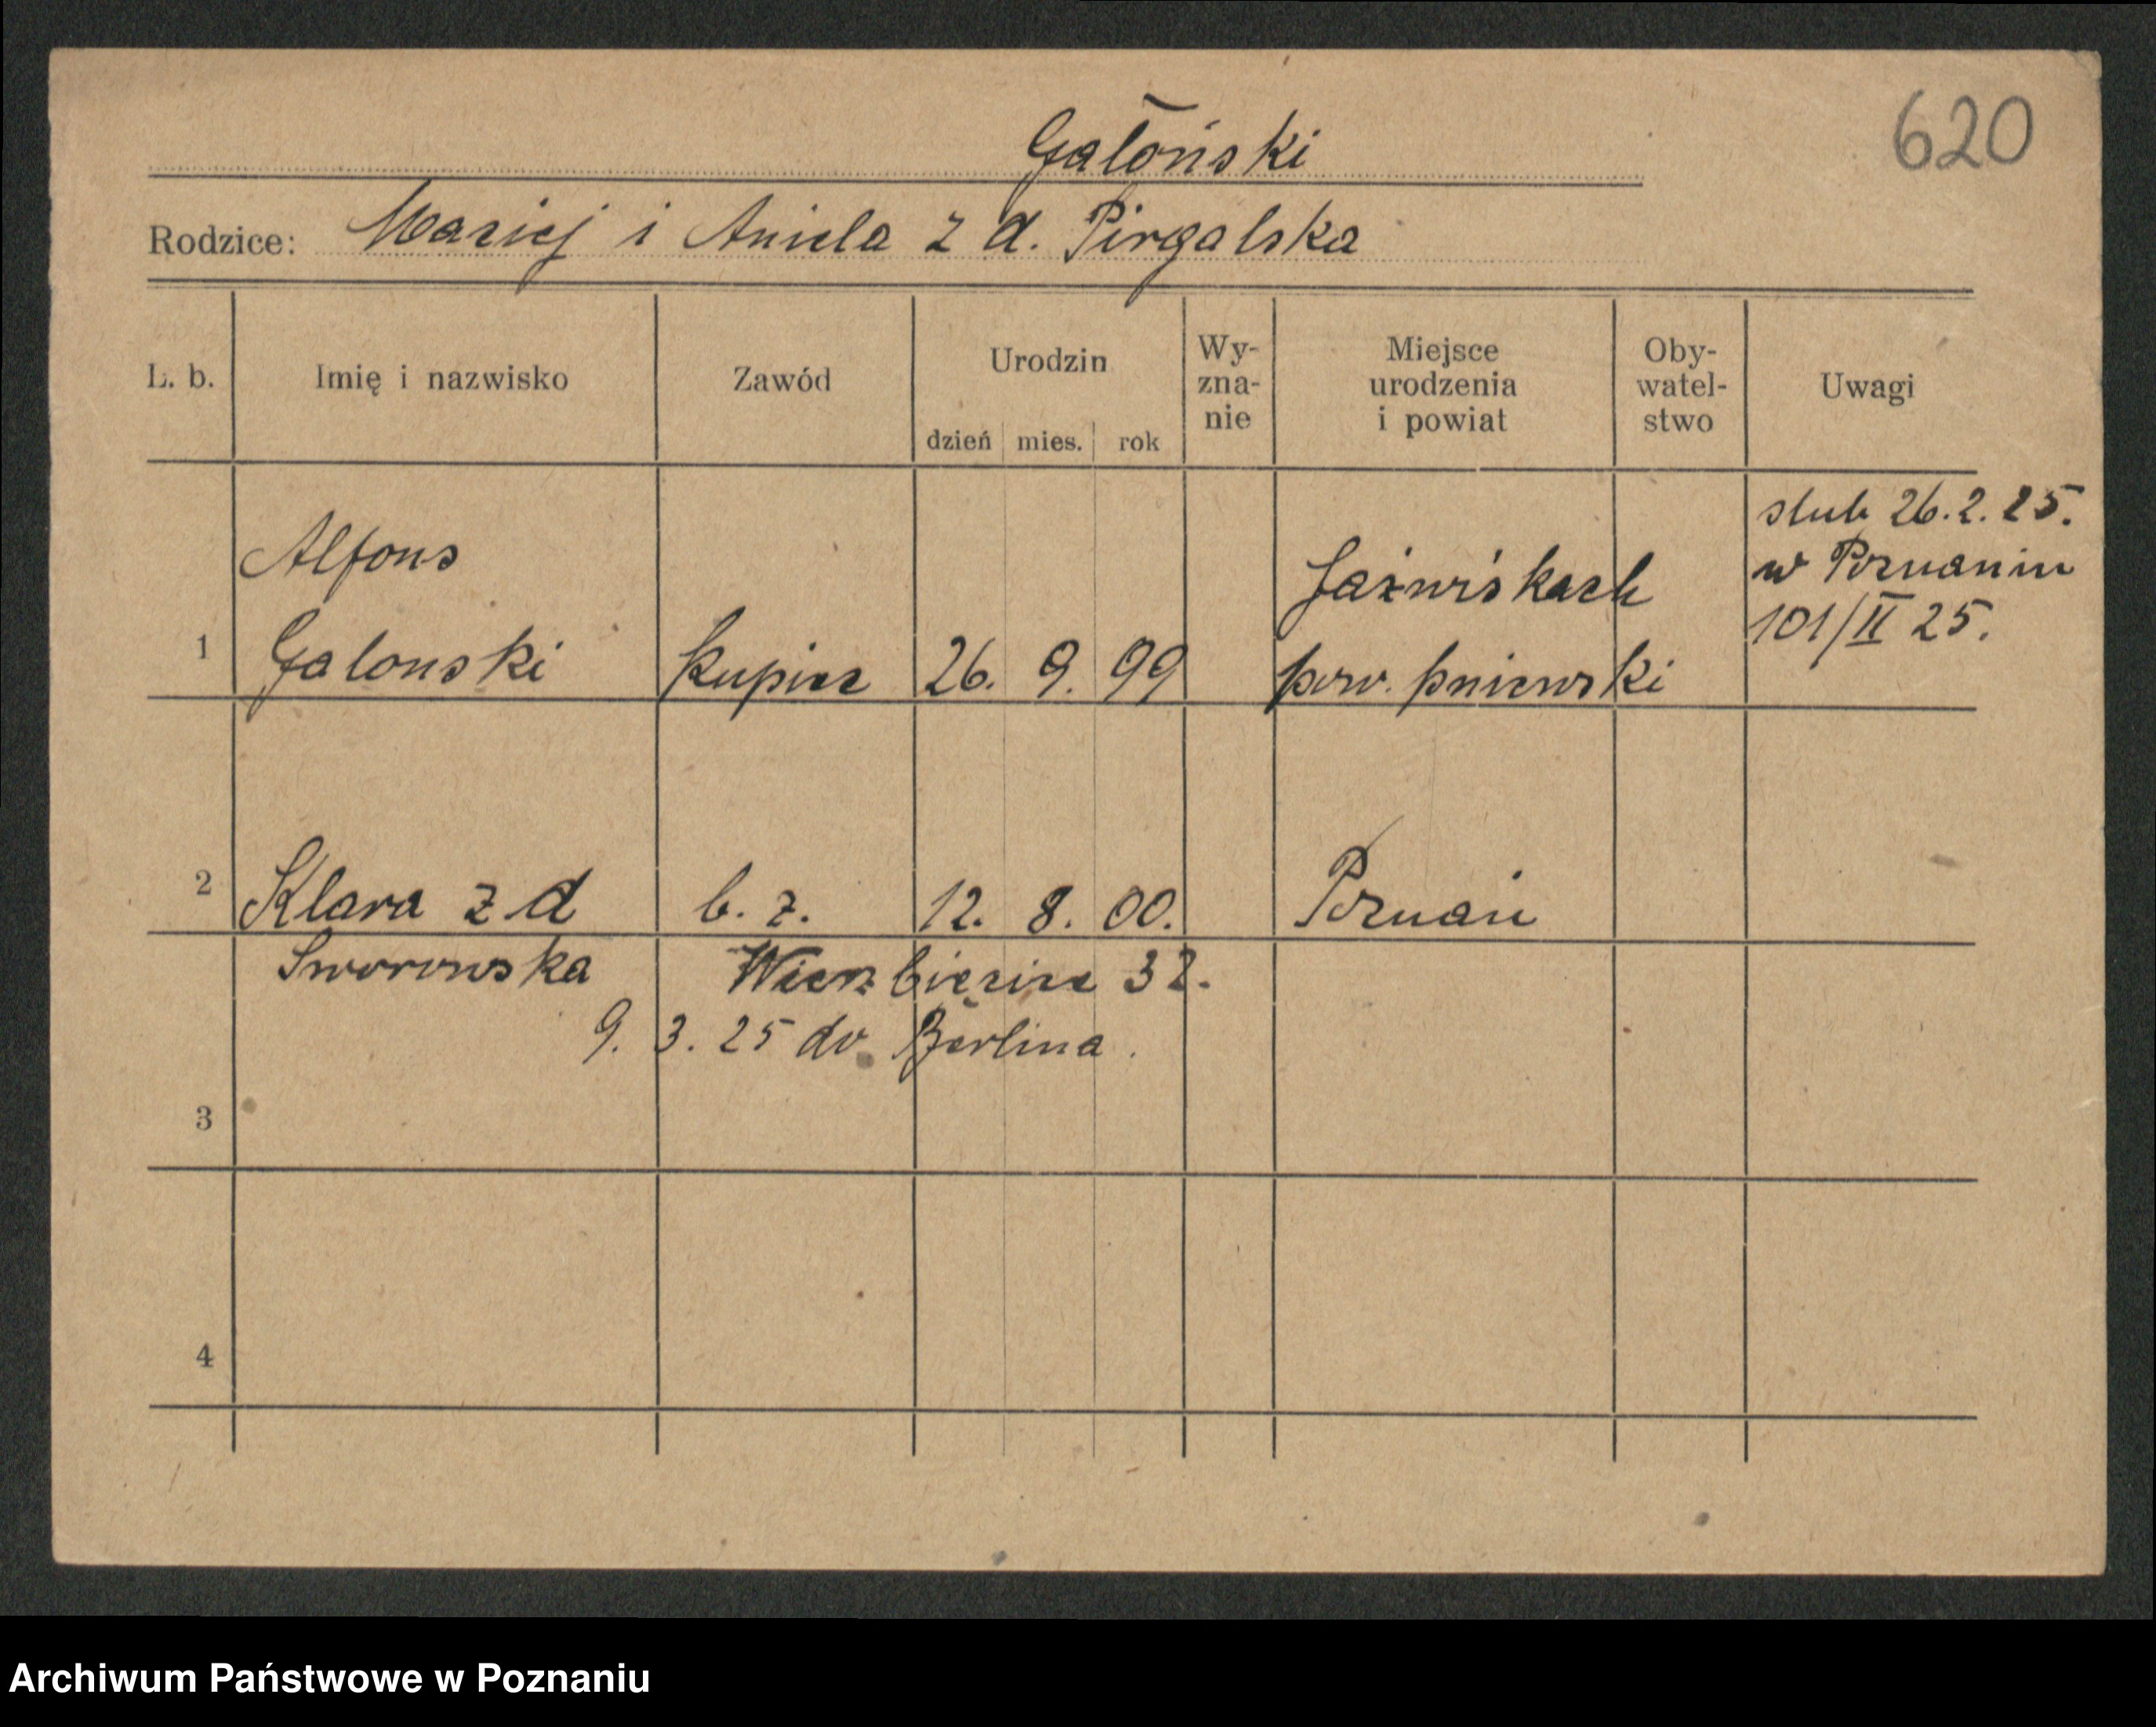 620
Gałoński
Rodzice: Maciej i Aniela z d. Pirgalska
L. b. Imię i nazwisko Zawód Urodzin dzień mies. rok Wy-zna-nie Miejsce urodzenia i powiat Oby-watel-stwo Uwagi
ślub 26.2.25.
w Poznaniu
101/II 25.
Alfons
Jaźwiskach
1 Galonski kupiec 26. 9. 99 pow. pniewski
2 Klara z d b. z. 12. 8. 00. Poznań
Sworowska Wierzbięcice 32.
9. 3. 25 do Berlina.
3
4
Archiwum Państwowe w Poznaniu